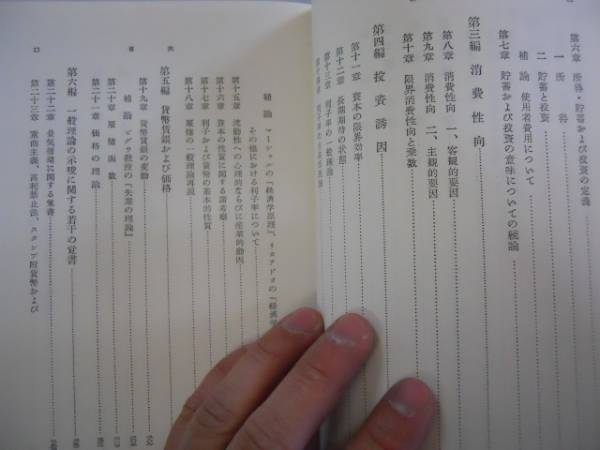 第六章 所得・貯蓄および投資の定義
一 所得
二 貯蓄と投資
補論 使用者費用について
第七章 貯蓄および投資の意味についての続論
第三編 消費性向
第八章 消費性向 一、客観的要因
第九章 消費性向 二、主観的要因
第十章 限界消費性向と乗数
第四編 投資誘因
第十一章 資本の限界効率
第十二章 長期期待の状態
第十三章 利子率の一般理論
補論 マーシャルの『経済学原理』、リカアドウの『経済学
その他における利子率について
第十五章 流動性への心理的ならびに産業的動因
第十六章 資本の性質に関する諸考察
第十七章 利子および貨幣の基本的性質
第十八章 雇傭の一般理論再説
第五編 貨幣賃銀および価格
第十九章 貨幣賃銀の変動
補論 ピグウ教授の『失業の理論』
第二十章 雇傭函数
第二十一章 価格の理論
第六編 一般理論の示唆に関する若干の覚書
第二十二章 景気循環に関する覚書
第二十三章 重商主義、高利禁止法、スタンプ附貨幣および